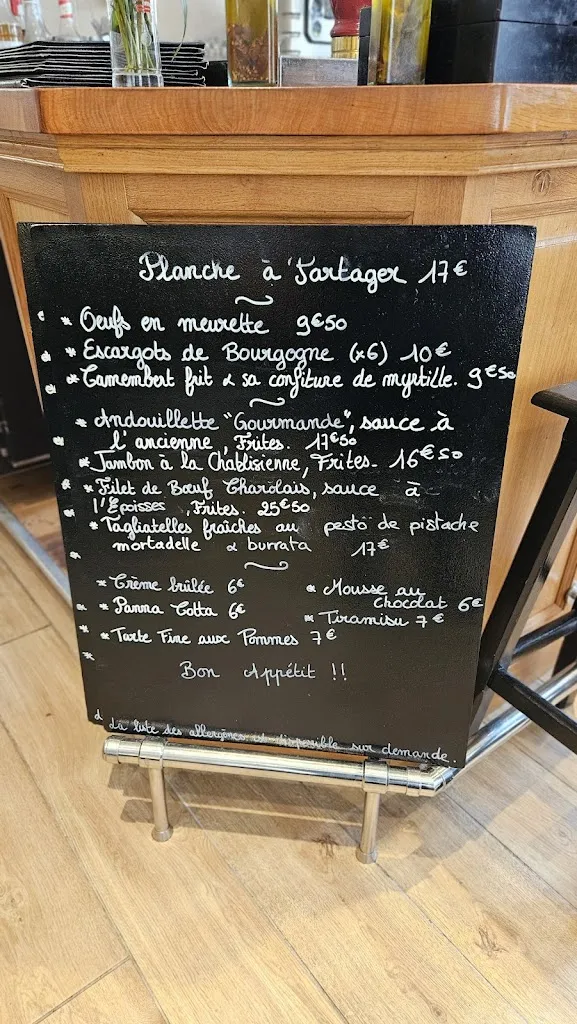 Planche à Partager 17€
* Oeufs en meurette 9€50
* Escargots de Bourgogne (x6) 10€
* Camembert frit & sa confiture de myrtille. 9€50
* Andouillette "Gourmande", sauce à
l'ancienne, Frites. 17€50
* Jambon à la Chablisienne, Frites. 16€50
* Filet de Bœuf Charolais, sauce à
l'Époisses, Frites. 25€50
* Tagliatelles fraîches au pesto de pistache
mortadelle & burrata 17€
* Crème brûlée 6€
* Mousse au
Chocolat 6€
* Panna Cotta 6€
* Tiramisu 7€
* Tarte Fine aux Pommes 7€
*
Bon Appétit !!
La liste des allergènes est disponible sur demande.